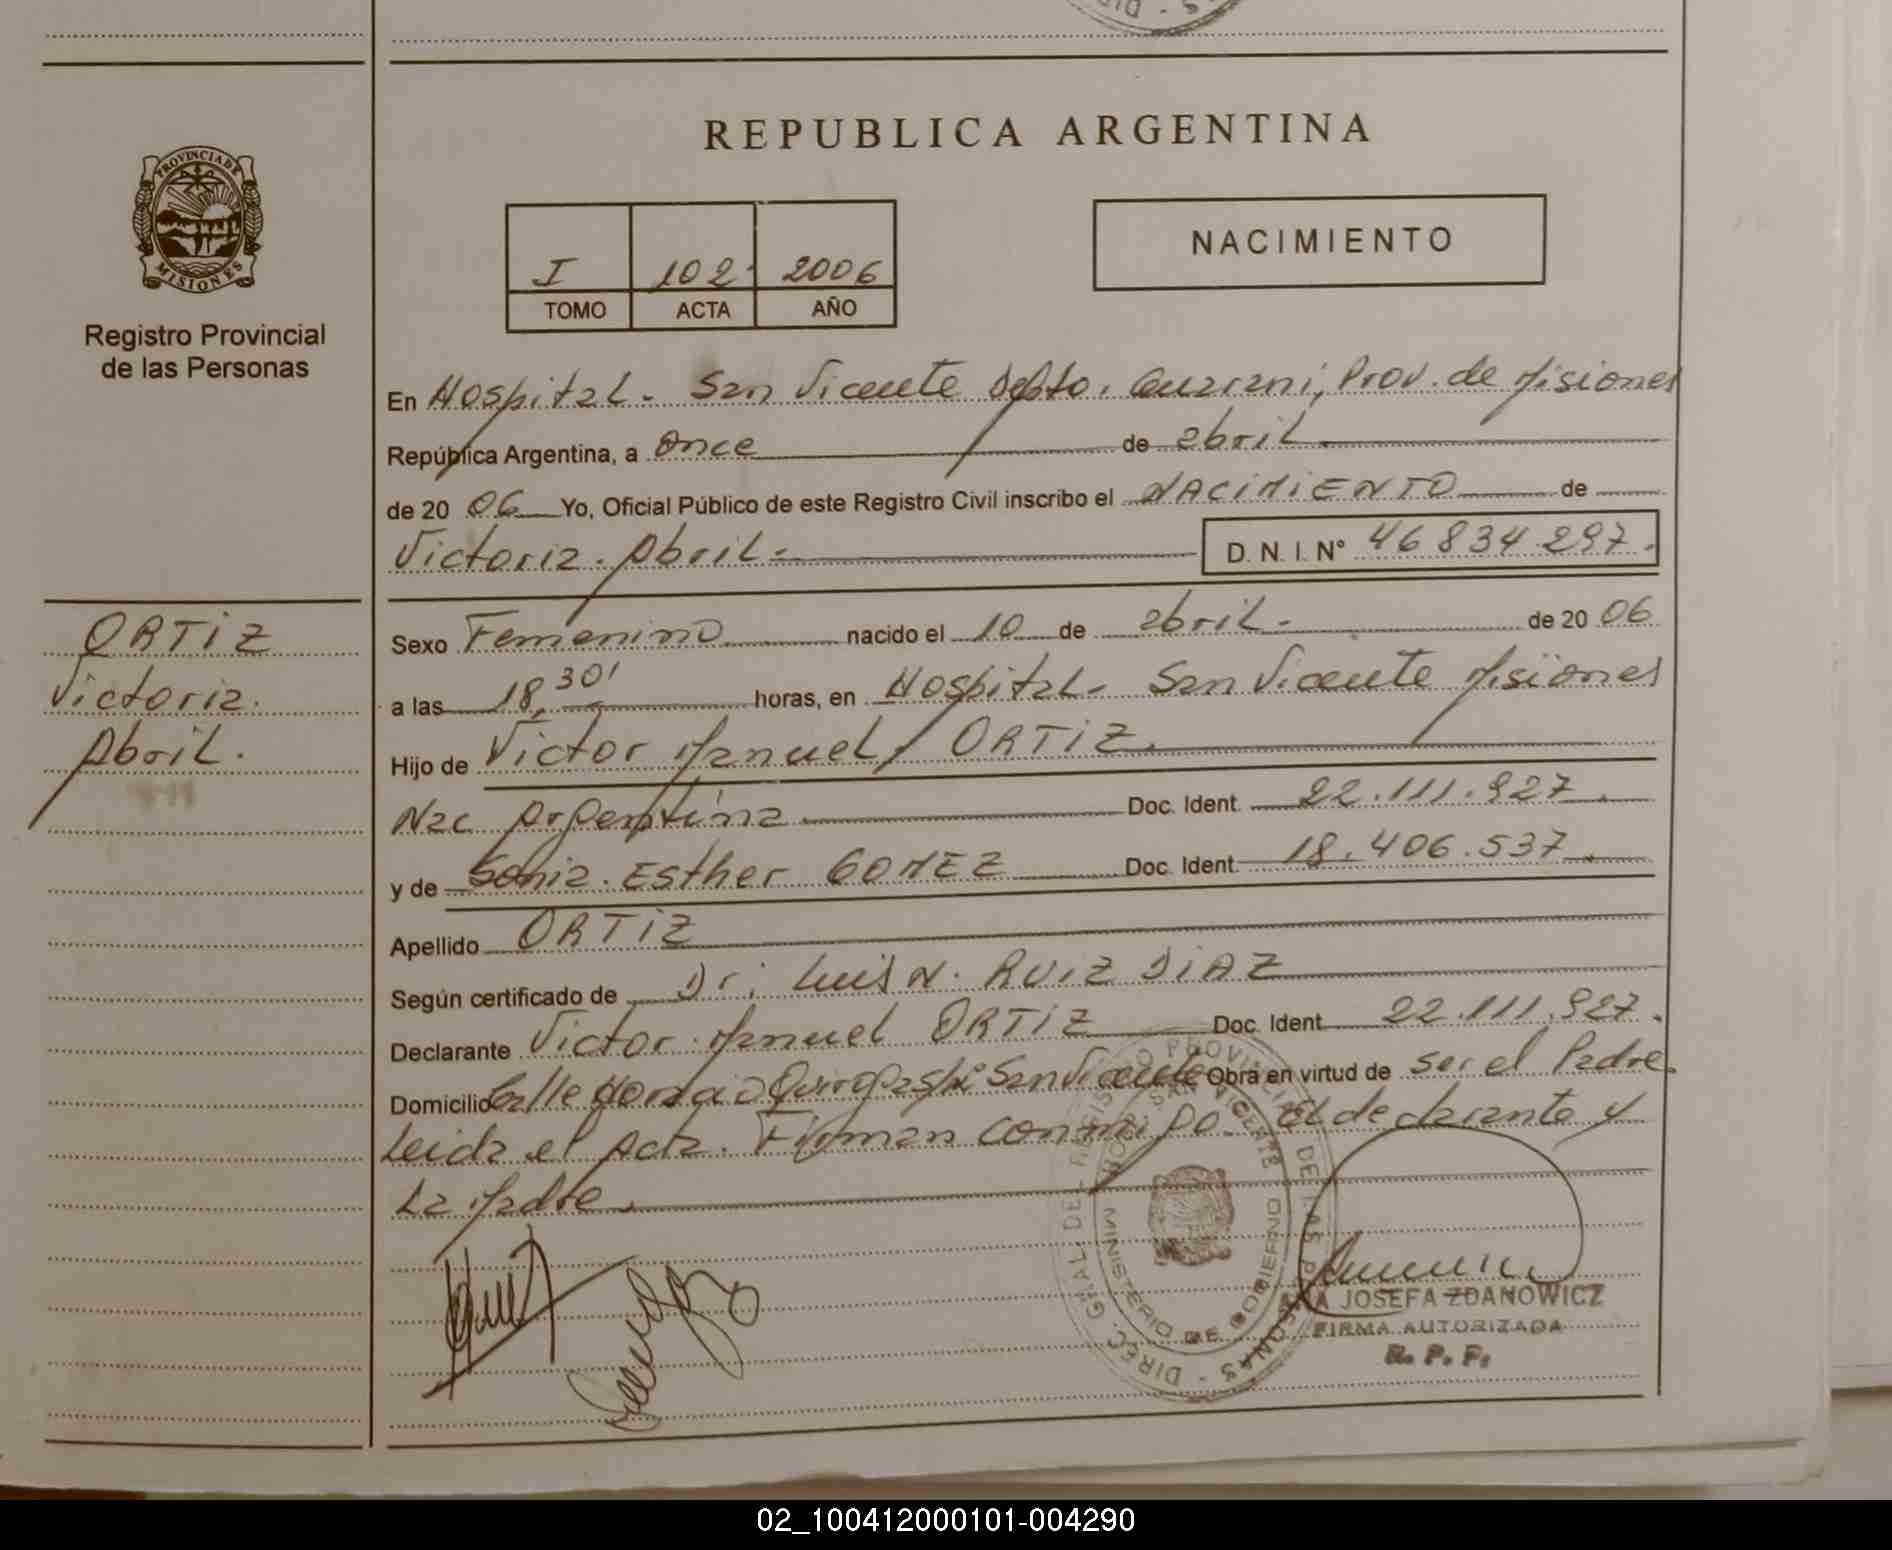 REPUBLICA ARGENTINA
PROVINCIA DE MISIONES
Registro Provincial
de las Personas
I 102 2006
TOMO ACTA AÑO
NACIMIENTO
En Hospital - San Vicente Depto. Guarani, Prov. de Misiones
República Argentina, a Once de abril
de 20 06 Yo, Oficial Público de este Registro Civil inscribo el NACIMIENTO de
Victoria Abril.- D. N. I. Nº 46834297.
ORTIZ
Victoria
Abril.
Sexo Femenino nacido el 10 de abril.- de 20 06
a las 18,30' horas, en Hospital - San Vicente Misiones
Hijo de Victor Manuel ORTIZ.
Nac Argentina Doc. Ident. 22.111.927.
y de Sonia Esther GOMEZ Doc. Ident. 18.406.537.
Apellido ORTIZ
Según certificado de Dr. Luis N. RUIZ DIAZ
Declarante Victor Manuel ORTIZ Doc. Ident. 22.111.927.
Domicilio Calle Horacio San Vicente Obra en virtud de ser el Padre.
Leida el Acta. Firman conmigo El declarante y
La Madre.
DIREC. GRAL. DEL REGISTRO PROVINCIAL DE LAS PERSONAS
MINISTERIO DE GOBIERNO
SAN VICENTE
JOSEFA ZDANOWICZ
FIRMA AUTORIZADA
R. P. P.
02_100412000101-004290